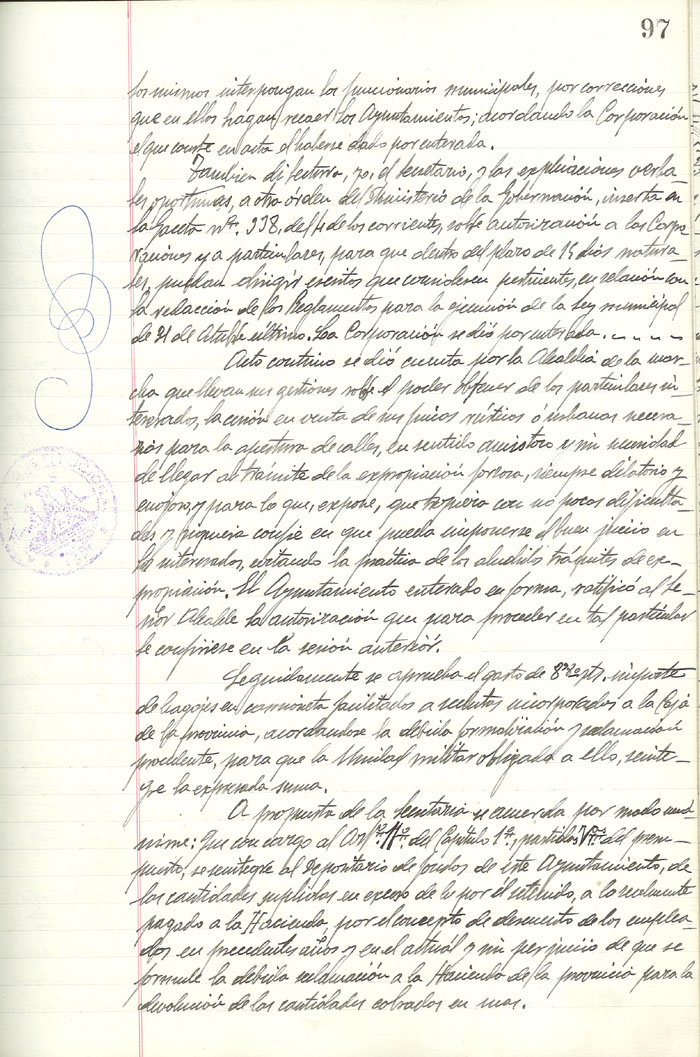 97
los mismos interpongan los funcionarios municipales, por correcciones
que en ellos hagan recaer los Ayuntamientos; acordando la Corporación
el que conste en acta el haberse dado por enterada.
Tambien di lectura, yo, el Secretario, y las explicaciones verba-
les oportunas, a otra órden del Ministerio de la Gobernación, inserta en
la Gaceta nº. 338, del 4 de los corrientes, sobre autorización a las Corpo-
raciones y a particulares, para que dentro del plazo de 15 dias natura-
les, puedan dirigir escritos que consideren pertinentes, en relación con
la redacción de los Reglamentos para la ejecución de la Ley municipal
de 31 de Octubre último. La Corporación se dió por enterada.
Acto continuo se dió cuenta por la Alcaldia de la mar-
cha que llevan sus gestiones sobre el poder obtener de los particulares in-
teresados, la cesión en venta de sus fincas rústicas o urbanas necesa-
rias para la apertura de calles, en sentido amistoso y sin necesidad
de llegar al trámite de la expropiación forzosa, siempre dilatorio y
enojoso, y para lo que, expone, que tropieza con no pocas dificulta-
des y siquiera confie en que pueda imponerse el buen juicio en
los interesados, evitando la práctica de los aludidos trámites de ex-
propiación. El Ayuntamiento enterado en forma, ratificó al Se-
ñor Alcalde la autorización que para proceder en tal particular
le confiriese en la sesión anterior.
Seguidamente se aprueba el gasto de ptas. importe
de bagajes en camioneta facilitados a reclutas incorporados a la Caja
de la provincia, acordandose la debida formalización y reclamación
procedente, para que la Unidad militar obligada a ello, reinte-
gre la expresada suma.
A propuesta de la Secretaria se acuerda por modo uná-
nime: Que con cargo al Artº. del Capitulo 1º, partidas del presu-
puesto, se reintegre al Depositario de fondos de este Ayuntamiento, de
las cantidades suplidas en exceso de lo por él retenido, a lo realmente
pagado a la Hacienda, por el concepto de descuento de los emplea-
dos en precedentes años y en el actual y sin perjuicio de que se
formule la debida reclamación a la Hacienda de la provincia para la
devolución de las cantidades cobradas en mas.